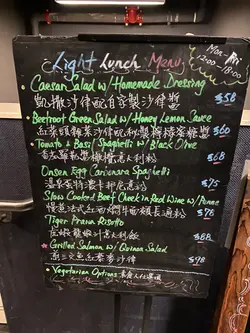 Light Lunch Menu
Mon - Fri
12:00 - 18:00
Caesar Salad w/ Homemade Dressing
凱撒沙律配自家製沙律醬 $58
Beetroot Green Salad w/ Honey Lemon Sauce
紅菜頭雜菜沙律配 蜂蜜 $60
Tomato & Basil Spaghetti w/ Black Olive
橄欖意大利粉 $68
Onsen Egg Carbonara Spaghetti
溫泉蛋 $75
Slow Cooked Beef Cheek in Red Wine w/ Penne
慢煮法式紅酒 牛 $78
Tiger Prawn Risotto
虎蝦 意大利飯 $88
Grilled Salmon w/ Quinoa Salad
三文魚 沙律 $98
Vegetarian Options